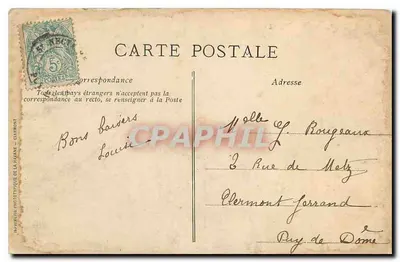 CARTE POSTALE
Correspondance
Tous les pays étrangers n'acceptent pas la
correspondance au recto, se renseigner à la Poste
Adresse
Bons baisers
Louise
CPAPHIL
Melle G. Rougeaux
3 Rue de Metz
Clermont Ferrand
Puy de Dôme
5